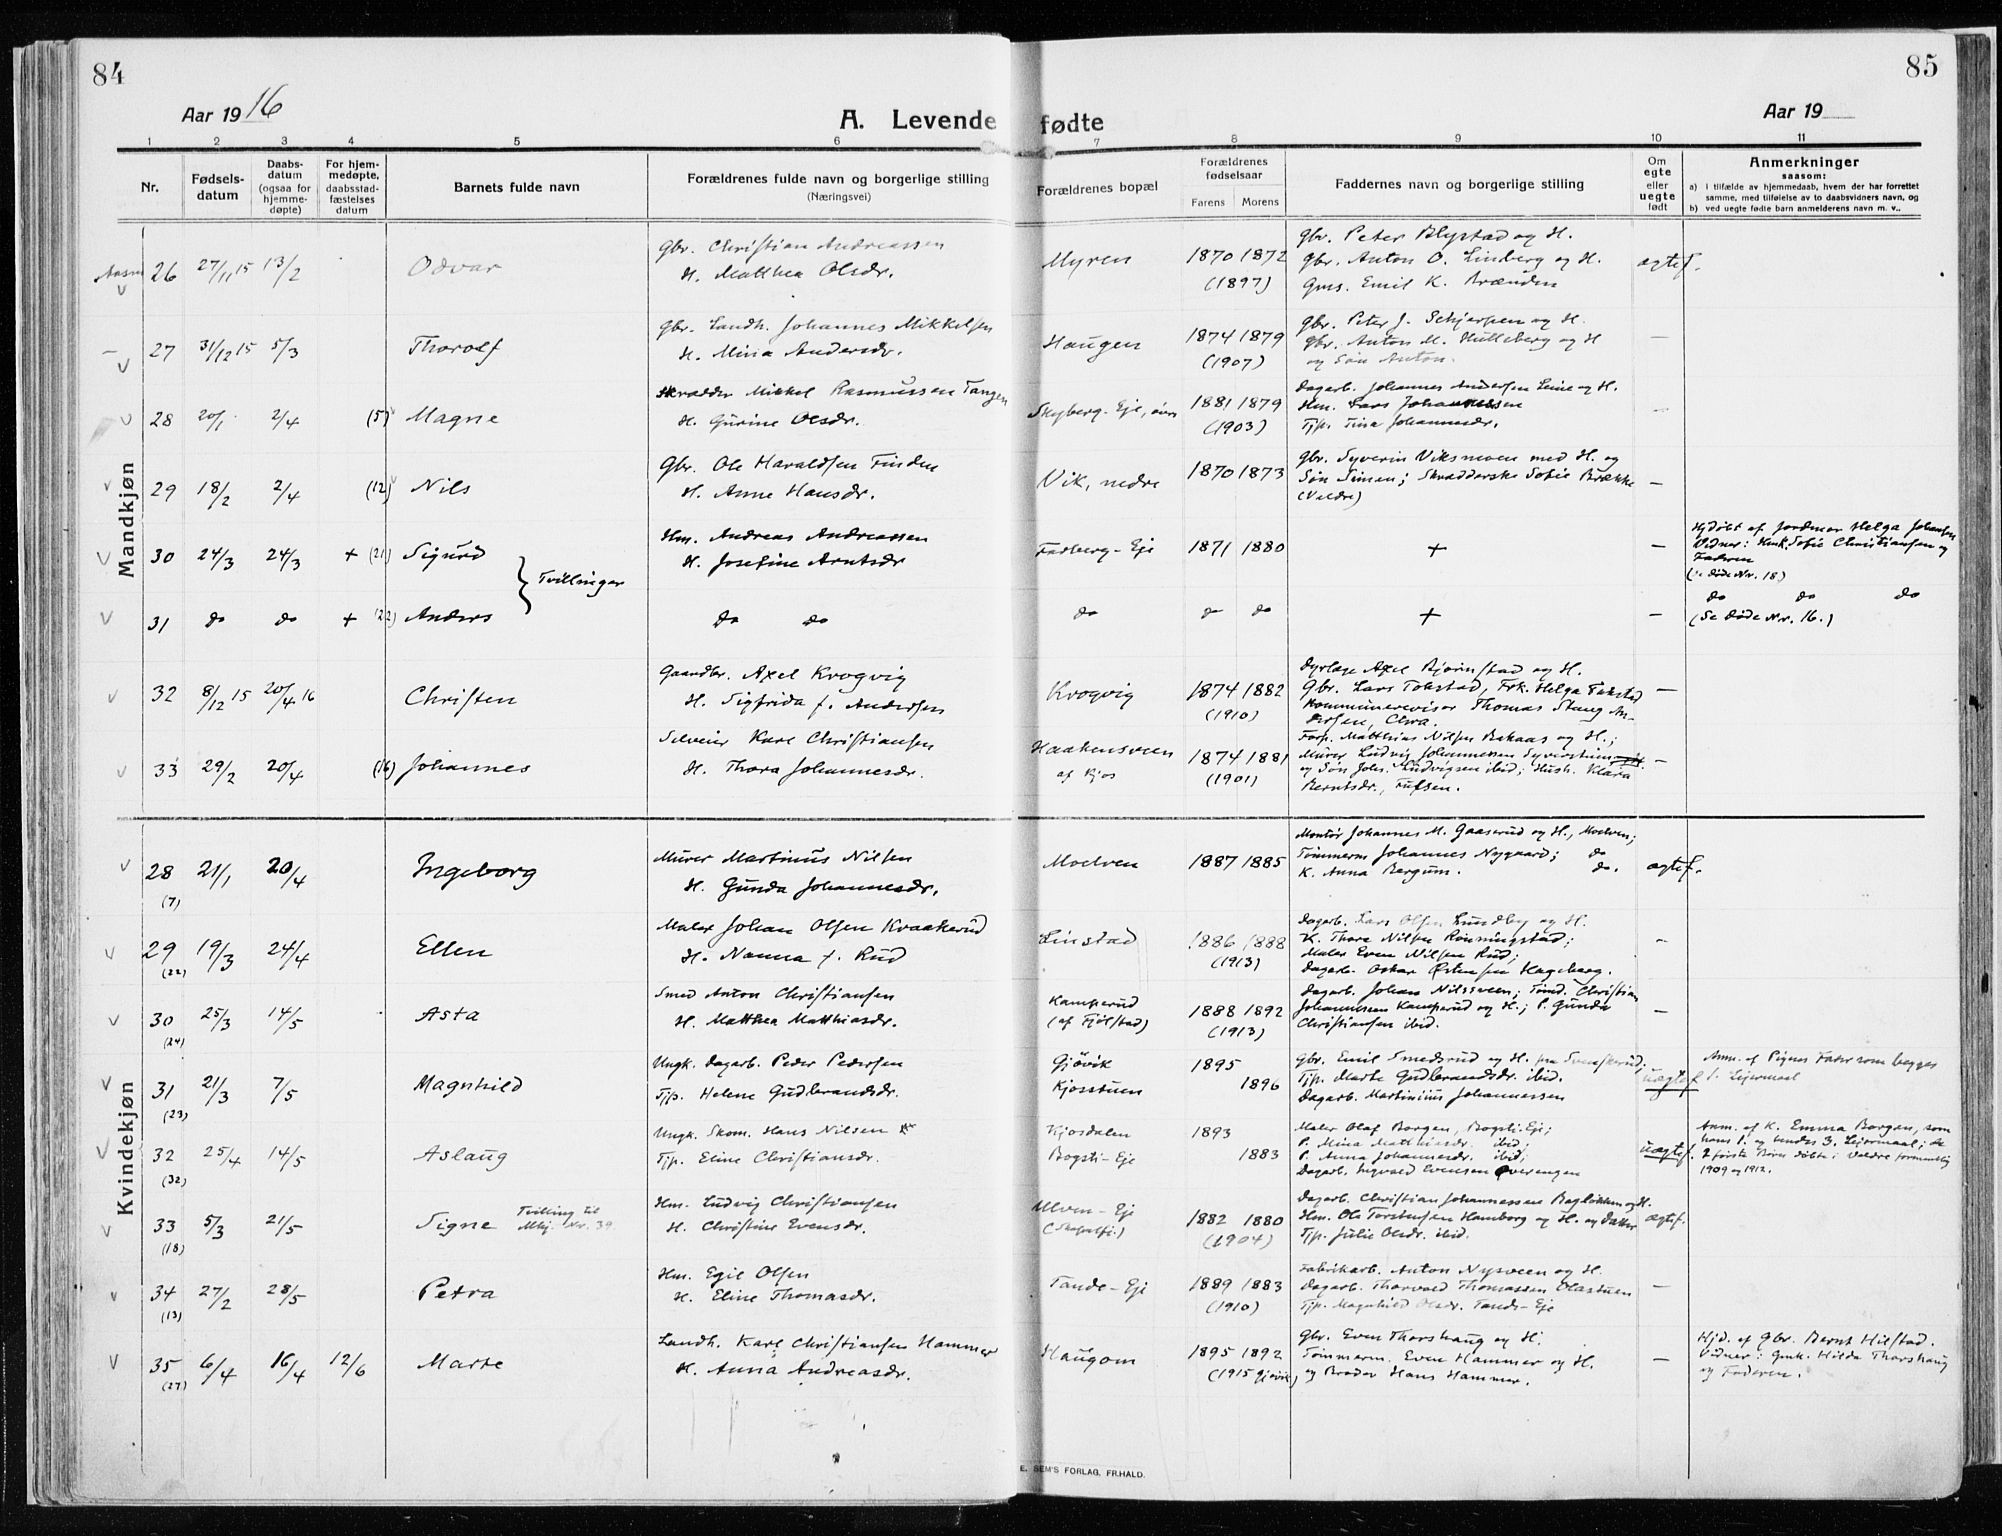 84
85
Aar 1916
A. Levende fødte
Aar 19
1 2 3 4 5 6 7 8 9 10 11
Nr.
Fødsels-
datum
Daabs-
datum
(ogsaa for
hjemme-
døpte)
For hjem-
medøpte,
daabsstad-
fæstelses
datum
Barnets fulde navn
Forældrenes fulde navn og borgerlige stilling
(Næringsvei)
Forældrenes bopæl
Forældrenes
fødselsaar
Farens Morens
Faddernes navn og borgerlige stilling
Om
egte
eller
uegte
født
Anmerkninger
saasom:
a) i tilfælde av hjemmedaab, hvem der har forrettet
samme, med tilføielse av to daabsvidners navn, og
b) ved uegte fødte barn anmelderens navn m. v..
Mandkjøn
26 27/11 15 13/2 Odvar
Gbr. Christian Andreassen
H. Matthea Olsdr.
Myren 1870 1872
(1897)
Gbr. Peter Blystad og H.
Gbr. Anton O. Linberg og H.
Gms. Emil K. Brænden
ægtef.
27 31/12 15 5/3 Thorolf
Gbr. Landh. Johannes Mikkelsen
H. Mina Andersdr.
Haugen 1874 1879
(1907)
Gbr. Peter J. Schjerpen og H.
Gbr. Anton M. Hulleberg og H
og Søn Anton.
—
28 20/1 2/4 (5) Magne
Skrædder Mikkel Rasmussen Tangen
H. Gurine Olsdr.
Skyberg-Eje, øvre 1881 1879
(1903)
Dagarb. Johannes Andersen Leine og H.
Hm. Lars Johannessen
Tjp. Tina Johannesdr.
—
29 18/2 2/4 (12) Nils
Gbr. Ole Haraldsen Finden
H. Anne Hansdr.
Vik, nedre 1870 1873
Gbr. Syverin Viksmoen med H. og
Søn Simen; Skrædderske Sofie Brække
(Valdre)
—
30 24/3 24/3 + (21) Sigurd
} Tvillinger
Hm. Andreas Andreassen
H. Josefine Arntsdr
Fadberg-Eje 1871 1880
+
—
Hjdøbt af Jordmor Helga Johansen
Vidner: Kmk. Sofie Christiansen og
Faderen
(se døde Nr. 18)
31 do do + (22) Anders
do do
do do do
+
—
do do do
(Se døde Nr. 16.)
32 8/12 15 20/4 16 Christen
Gaardbr. Axel Krogvig
H. Sigfrida f. Andersen
Krogvig 1874 1882
(1910)
Dyrlæge Axel Bjørnstad og H.
Gbr. Lars Tokstad, Frk. Helga Tokstad
Kommunerevisor Thomas Stang An-
dersen, Chra.
—
33 29/2 20/4 (16) Johannes
Selveier Karl Christiansen
H. Thora Johannesdr.
Haakensveen
af Kjos
1874 1881
(1901)
Forp. Matthias Nilsen Bakaas og H.;
Murer Ludvig Johannessen
og Søn Johs. Ludvigsen ibid; Hush. Klara
Berntsdr., Fufsen.
—
Kvindekjøn
28 21/1 20/4 Ingeborg
(7)
Murer Martinus Nilsen
H. Gunda Johannesdr.
Moelven 1887 1885
Montør Johannes M. Gaaserud og H., Moelven;
Tømmerm Johannes Nygaard; do
K. Anna Bergum. do.
ægtef.
29 19/3 24/4 Ellen
(22)
Maler Johan Olsen Kraakerud
H. Nanna f. Rud
Linstad 1886 1888
(1913)
Dagarb. Lars Olsen Lundby og H.
K. Thora Nilsen Rønningstad;
Maler Even Nilsen Rud;
Dagarb. Oskar Østensen Hageberg.
—
30 25/3 14/5 Asta
(24)
Smed Anton Christiansen
H. Matthea Matthiasdr.
Kamperud
(af Fjølstad)
1888 1892
(1913)
Dagarb. Johan Nilssveen; Tømd. Christian
Johannessen Kamperud og H.; P. Gunda
Christiansen ibid.
—
31 21/3 7/5 Magnhild
(23)
Ungk. dagarb. Peder Pedersen
Tjp. Helene Gudbrandsdr.
Gjøvik 1895
Kjosstuen 1896
Gbr. Emil Smedsrud og H. fra Svenskerud;
Tjp. Marte Gudbrandsdr. ibid.
Dagarb. Martinius Johannessen
uægtef
Anm. af Pigens Fader som begges
1. Lejermaal
32 25/4 14/5 Aslaug
(32)
Ungk. Skom. Hans Nilsen
Tjp. Eline Christiansdr.
Kjosdalen 1893
Bogsti-Eje 1883
Maler Olaf Borgen, Bogsti-Eje;
P. Mina Matthiasdr. ibid;
P. Anna Johannesdr. ibid;
Dagarb. Sigvald Evensen Overengen
uægtef.
Anm. af K. Emma Borgen, som
hans 1. og hendes 3. Lejermaal; de
2 første Børn døbte i Valdre formentlig
1909 og 1912.
33 5/3 21/5 Signe Tvilling til
Mkj. Nr. 39.
(18)
Hm. Ludvig Christiansen
H. Christine Evensdr.
Ulven-Ej
1882 1880
(1904)
Dagarb. Christian Johannessen Bagløkken og H.
Hm. Ole Torstensen Hamborg og H. og Datter
Tjp. Julie Olsdr. ibid.
ægtef.
34 27/2 28/5 Petra
(13)
Hm. Egil Olsen
H. Eline Thomasdr.
Tande-Eje 1889 1883
(1910)
Fabrikarb. Anton Nysveen og H.
Dagarb. Thorvald Thomassen Olastuen
Tjp. Magnhild Olsdr. Tande-Eje
—
35 6/4 16/4 12/6 Marte
(27)
Landh. Karl Christiansen Hammer
H. Anna Andreasdr.
Haugom 1895 1892
(1915 Gjøvik)
Gbr. Even Thorshaug og H.
Tømmerm. Even Hammer og H.
og Broder Hans Hammer.
—
Hjd. af Gbr. Bernt Hilstad.
Vidner: Gmk. Hilda Thorshaug
og Faderen.
E. SEM'S FORLAG, FR.HALD.